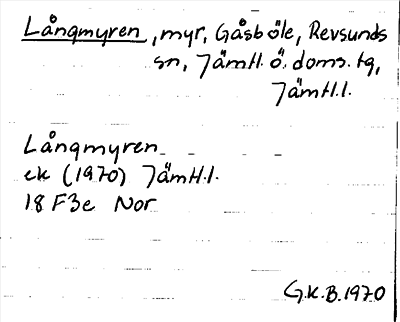 Långmyren, myr, Gåsböle, Revsunds
sn, Jämtl. ö. doms. tg,
Jämtl.l.
Långmyren
ek (1970) Jämtl.l.
18 F3e Nor
G.K.B.1970